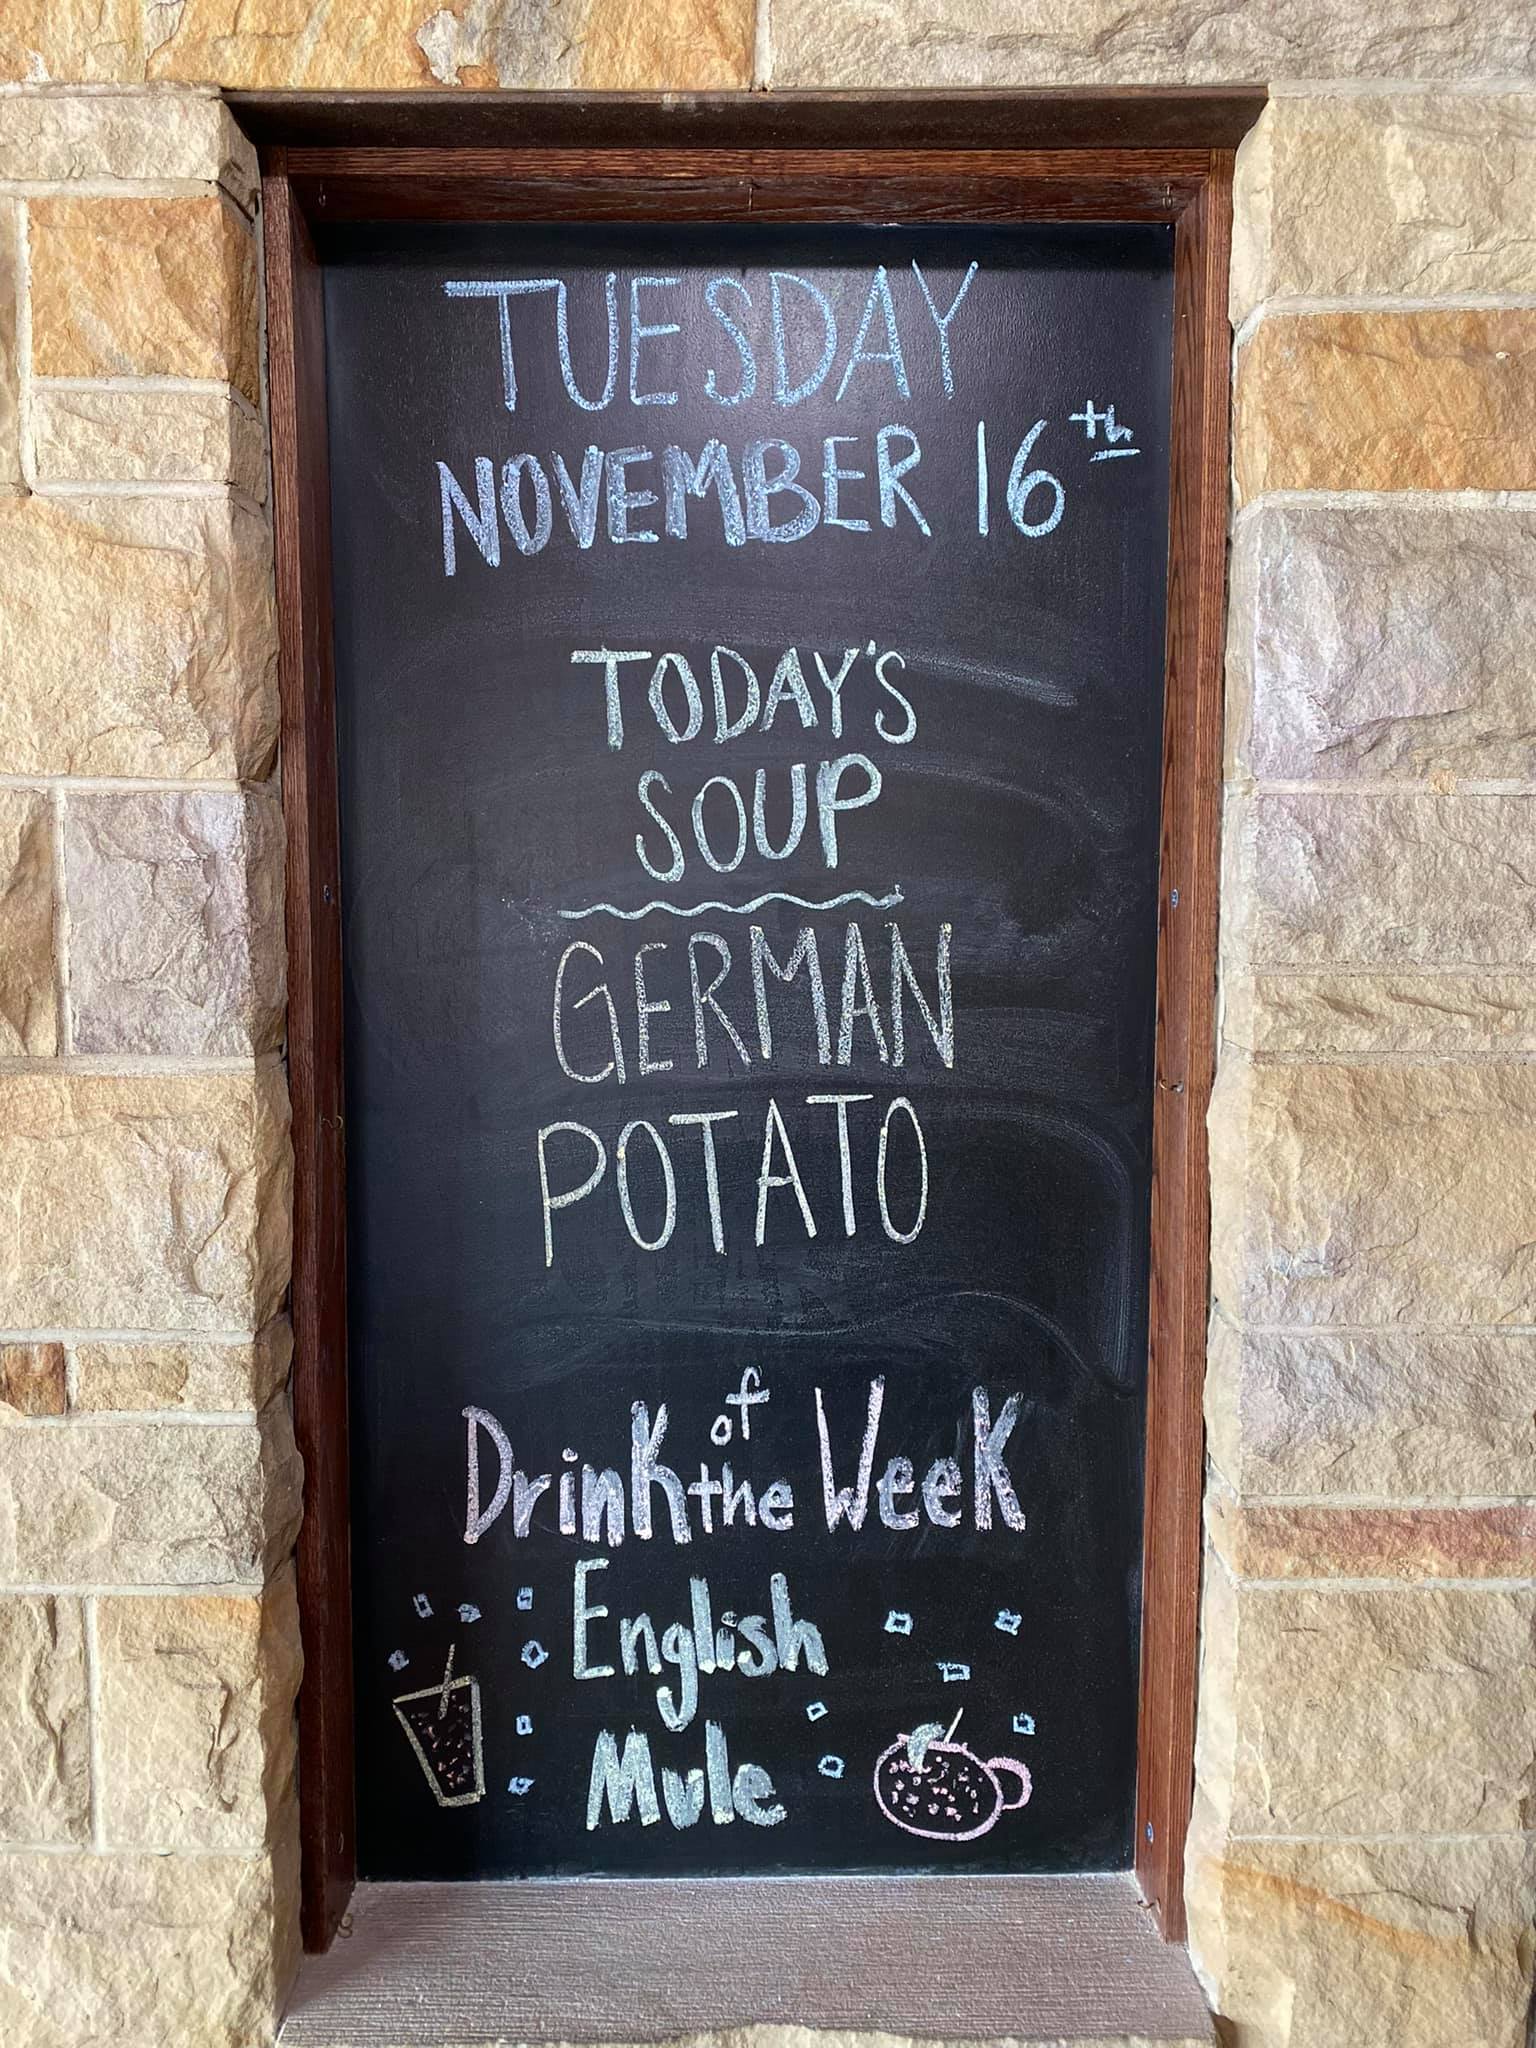 TUESDAY
NOVEMBER 16th
TODAY'S
SOUP
GERMAN
POTATO
Drink of the Week
English
Mule